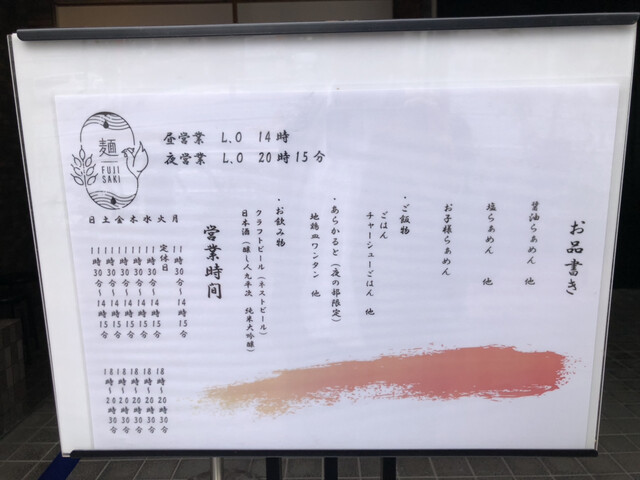 麺
FUJI
SAKI
昼営業 L.O 14時
夜営業 L.O 20時15分
お品書き
醤油らぁめん 他
塩らぁめん 他
お子様らぁめん
・ご飯物
ごはん
チャーシューごはん 他
・あらかると(夜の部限定)
地鶏皿ワンタン 他
・お飲み物
クラフトビール(ネストビール)
日本酒(醸し人九平次 純米大吟醸)
営業時間
月 11時30分~14時15分
火 定休日
水 11時30分~14時15分 18時~20時30分
木 11時30分~14時15分 18時~20時30分
金 11時30分~14時15分 18時~20時30分
土 11時30分~14時15分 18時~20時30分
日 11時30分~14時15分 18時~20時30分